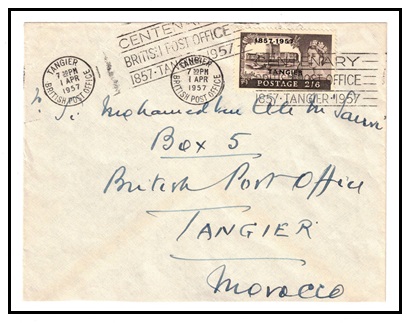 CENTENARY
BRITISH POST OFFICE
1857·TANGIER·1957
TANGIER
7 30PM
1 APR
1957
BRITISH POST OFFICE
TANGIER
7 30PM
1 APR
1957
BRITISH POST OFFICE
1857-1957
TANGIER
POSTAGE 2'6
CENTENARY
BRITISH POST OFFICE
1857·TANGIER·1957
Mohamed Ali
Box 5
British Post Office
TANGIER
Morocco